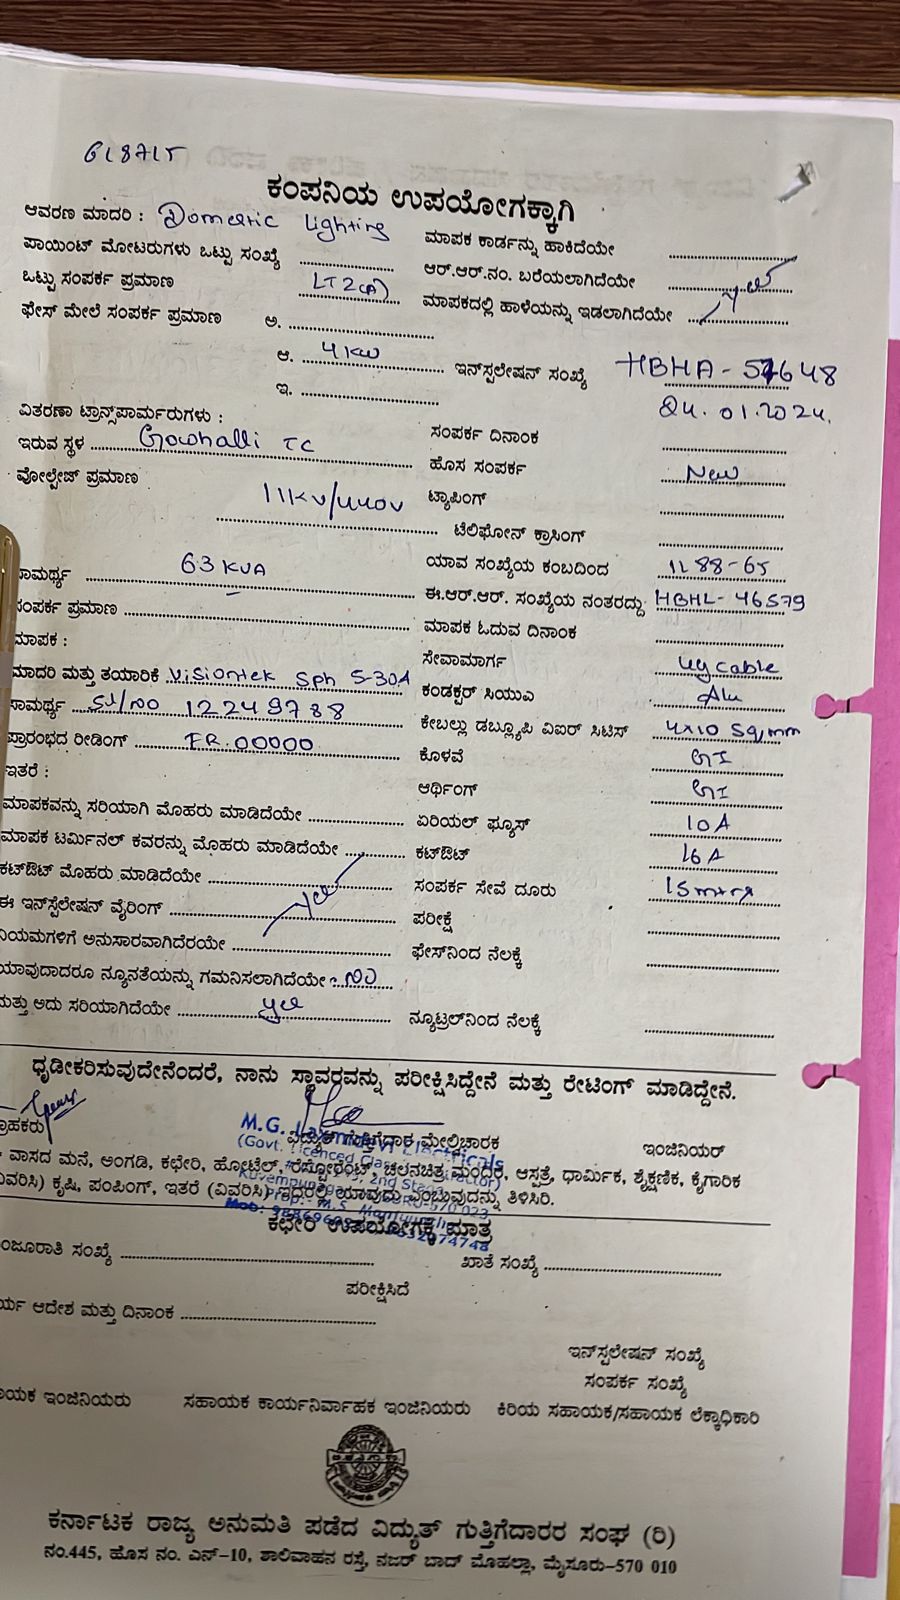 618715
ಕಂಪನಿಯ ಉಪಯೋಗಕ್ಕಾಗಿ
ಆವರಣ ಮಾದರಿ : Domestic Lighting ಮಾಪಕ ಕಾರ್ಡನ್ನು ಹಾಕಿದೆಯೇ
ಪಾಯಿಂಟ್ ಮೋಟರುಗಳು ಒಟ್ಟು ಸಂಖ್ಯೆ ಆರ್.ಆರ್.ನಂ. ಬರೆಯಲಾಗಿದೆಯೇ
ಒಟ್ಟು ಸಂಪರ್ಕ ಪ್ರಮಾಣ LT2(A) ಮಾಪಕದಲ್ಲಿ ಹಾಳೆಯನ್ನು ಇಡಲಾಗಿದೆಯೇ yes
ಫೇಸ್ ಮೇಲೆ ಸಂಪರ್ಕ ಪ್ರಮಾಣ ಅ.
ಆ. 4 KW ಇನ್‌ಸ್ಪಲೇಷನ್ ಸಂಖ್ಯೆ HBHA-57648
ಇ. 24.01.2024.
ವಿತರಣಾ ಟ್ರಾನ್ಸ್‌ಪಾರ್ಮರುಗಳು : ಸಂಪರ್ಕ ದಿನಾಂಕ
ಇರುವ ಸ್ಥಳ Gowhalli TC ಹೊಸ ಸಂಪರ್ಕ New
ವೋಲ್ಟೇಜ್ ಪ್ರಮಾಣ 11KV/440V ಟ್ಯಾಪಿಂಗ್
ಟೆಲಿಫೋನ್ ಕ್ರಾಸಿಂಗ್
ಸಾಮರ್ಥ್ಯ 63 KVA ಯಾವ ಸಂಖ್ಯೆಯ ಕಂಬದಿಂದ 1288-65
ಸಂಪರ್ಕ ಪ್ರಮಾಣ ಈ.ಆರ್.ಆರ್. ಸಂಖ್ಯೆಯ ನಂತರದ್ದು HBHL-46579
ಮಾಪಕ : ಮಾಪಕ ಓದುವ ದಿನಾಂಕ
ಮಾದರಿ ಮತ್ತು ತಯಾರಿಕೆ Visiontek Sph 5-30A ಸೇವಾಮಾರ್ಗ ug cable
ಸಾಮರ್ಥ್ಯ Sl/no 12249788 ಕಂಡಕ್ಟರ್ ಸಿಯುವಿ Alu
ಪ್ರಾರಂಭದ ರೀಡಿಂಗ್ FR.00000 ಕೇಬಲ್ಲು ಡಬ್ಲ್ಯೂಪಿ ವಿಐರ್ ಸಿಟಿಸ್ 4x10 Sq,mm
ಇತರೆ : ಕೊಳವೆ GI
ಆರ್ಥಿಂಗ್ GI
ಮಾಪಕವನ್ನು ಸರಿಯಾಗಿ ಮೊಹರು ಮಾಡಿದೆಯೇ ಏರಿಯಲ್ ಫ್ಯೂಸ್ 10A
ಮಾಪಕ ಟರ್ಮಿನಲ್ ಕವರನ್ನು ಮೊಹರು ಮಾಡಿದೆಯೇ ಕಟ್‌ಔಟ್ 16A
ಕಟ್‌ಔಟ್ ಮೊಹರು ಮಾಡಿದೆಯೇ ಸಂಪರ್ಕ ಸೇವೆ ದೂರು 15 mtrs
ಈ ಇನ್‌ಸ್ಪೆಲೇಷನ್ ವೈರಿಂಗ್ yes ಪರೀಕ್ಷೆ
ನಿಯಮಗಳಿಗೆ ಅನುಸಾರವಾಗಿದೆರಯೇ ಫೇಸ್‌ನಿಂದ ನೆಲಕ್ಕೆ
ಯಾವುದಾದರೂ ನ್ಯೂನತೆಯನ್ನು ಗಮನಿಸಲಾಗಿದೆಯೇ : no
ಮತ್ತು ಅದು ಸರಿಯಾಗಿದೆಯೇ yes ನ್ಯೂಟ್ರಲ್‌ನಿಂದ ನೆಲಕ್ಕೆ
ಧೃಡೀಕರಿಸುವುದೇನೆಂದರೆ, ನಾನು ಸ್ಥಾವರವನ್ನು ಪರೀಕ್ಷಿಸಿದ್ದೇನೆ ಮತ್ತು ರೇಟಿಂಗ್ ಮಾಡಿದ್ದೇನೆ.
ಗ್ರಾಹಕರು ವಿದ್ಯುತ್ ಗುತ್ತಿಗೆದಾರ ಮೇಲ್ವಿಚಾರಕ ಇಂಜಿನಿಯರ್
M.G. Laxmidevi Electricals
(Govt. Licenced Class Contractor)
ವಾಸದ ಮನೆ, ಅಂಗಡಿ, ಕಛೇರಿ, ಹೋಟೆಲ್, ರೆಸ್ಟೋರೆಂಟ್, ಚಲನಚಿತ್ರ ಮಂದಿರ, ಆಸ್ಪತ್ರೆ, ಧಾರ್ಮಿಕ, ಶೈಕ್ಷಣಿಕ, ಕೈಗಾರಿಕ
ವಿವರಿಸಿ) ಕೃಷಿ, ಪಂಪಿಂಗ್, ಇತರೆ (ವಿವರಿಸಿ) ಇದರಲ್ಲಿ ಯಾವುದು ಎಂಬುವುದನ್ನು ತಿಳಿಸಿರಿ.
ಕಛೇರಿ ಉಪಯೋಗಕ್ಕೆ ಮಾತ್ರ
ಮಂಜೂರಾತಿ ಸಂಖ್ಯೆ ಖಾತೆ ಸಂಖ್ಯೆ
ಪರೀಕ್ಷಿಸಿದೆ
ಆದೇಶ ಮತ್ತು ದಿನಾಂಕ
ಇನ್‌ಸ್ಪಲೇಷನ್ ಸಂಖ್ಯೆ
ಸಂಪರ್ಕ ಸಂಖ್ಯೆ
ಸಹಾಯಕ ಇಂಜಿನಿಯರು ಸಹಾಯಕ ಕಾರ್ಯನಿರ್ವಾಹಕ ಇಂಜಿನಿಯರು ಕಿರಿಯ ಸಹಾಯಕ/ಸಹಾಯಕ ಲೆಕ್ಕಾಧಿಕಾರಿ
ಕರ್ನಾಟಕ ರಾಜ್ಯ ಅನುಮತಿ ಪಡೆದ ವಿದ್ಯುತ್ ಗುತ್ತಿಗೆದಾರರ ಸಂಘ (ರಿ)
ನಂ.445, ಹೊಸ ನಂ. ಎನ್-10, ಶಾಲಿವಾಹನ ರಸ್ತೆ, ನಜರ್ ಬಾದ್ ಮೊಹಲ್ಲಾ, ಮೈಸೂರು-570 010